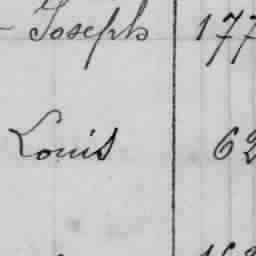 - Joseph 177
Louis 62